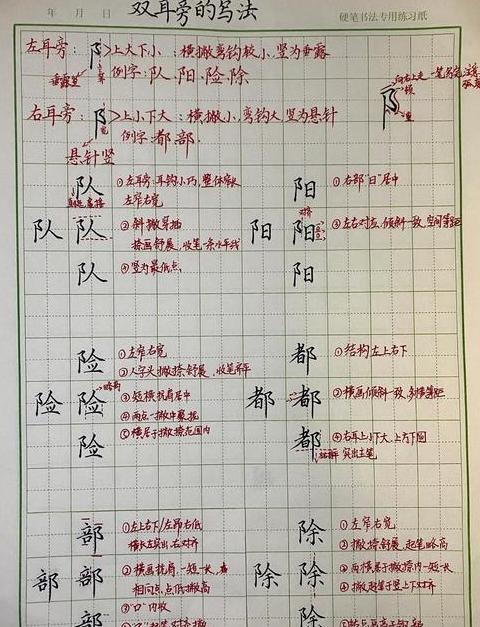 双耳旁的写法
年 月 日
硬笔书法专用练习纸
左耳旁：阝>上大下小：横撇弯钩较小，竖为垂露
垂露竖
例字：队.阳.险.除
右耳旁：阝>上小下大：横撇小，弯钩大，竖为悬针
例字：都.部.
悬针竖
队 ①左耳旁：耳钩小巧，整体窄长
左窄右宽
队 队 ②斜撇穿插
捺画舒展，收笔一条水平线
队 ④竖为最低点，
阳 ①右部“日”居中
阳 阳 ②左右对应，倾斜一致，空间等距
阳
险 ①左窄右宽
②人字头撇捺舒展，收笔齐平
险 险 ③短横抗肩居中
④两点一撇中紧挑
险 ⑤横居于撇捺范围内
都 ①结构左上右下
都 都 ②横画倾斜一致，多横等距
都 ④右耳上小下大，上方下圆
突出主笔
部 ①左上右下/左昂右低
横长左突出，右对齐
部 部 ②横画抗肩，一短一长，
相向点，点低撇高
③“口”内收
部
除 ①左窄右宽
②撇捺舒展，起笔略高
除 除 ③两横居于撇捺内一短一长
④撇起笔于竖上下对齐
除